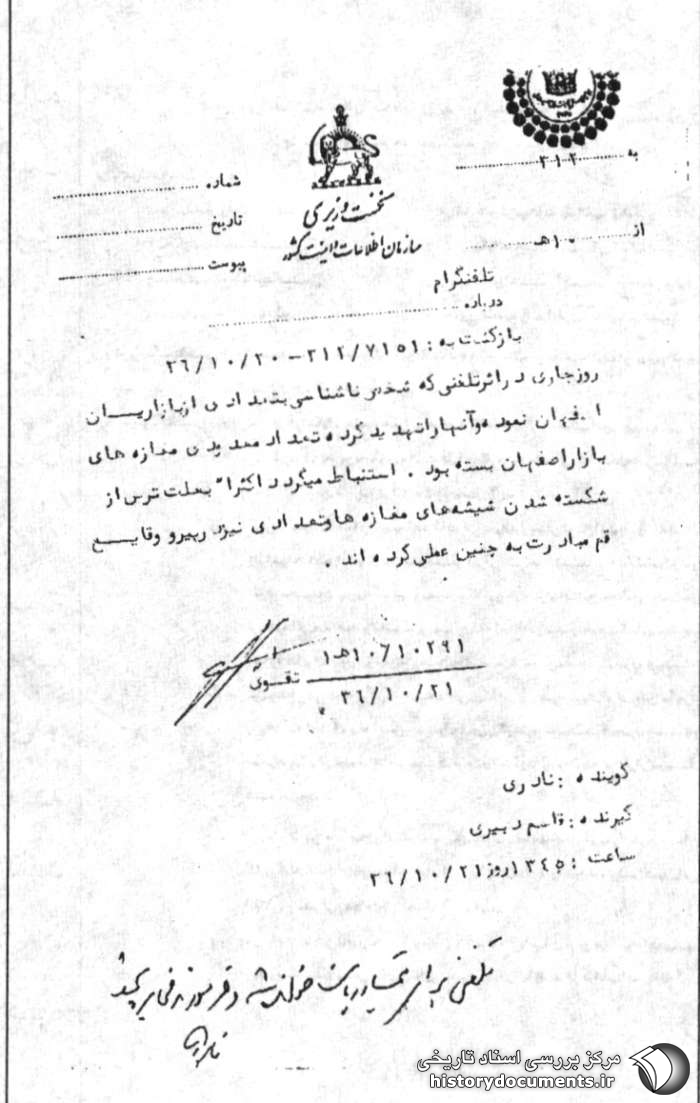 به ۳۱۲
از ۱۰هـ
نخست وزیری
سازمان اطلاعات و امنیت کشور
شماره
تاریخ
پیوست
تلفنگرام
درباره
بازگشت به : ۳۱۲/۷۱۵۱ - ۳۶/۱۰/۲۰
روز جاری در اثر تلفنی که شخص ناشناسی بتعدادی از بازاریان
اصفهان نموده و آنها را تهدید کرده تعداد معدودی مغازه های
بازار اصفهان بسته بود . استنباط میگردد اکثراً بعلت ترس از
شکسته شدن شیشه های مغازه ها و تعدادی نیز پیرو وقایع
قم مبادرت به چنین عملی کرده اند .
۱۰/۱۰۲۹۱هـ۱
تقوی
۳۶/۱۰/۲۱
گوینده : نادری
گیرنده : قاسم دبیری
ساعت : ۱۳۴۵ روز ۳۶/۱۰/۲۱
تلفنی برای تیمسار ریاست خوانده شد
مرکز بررسی اسناد تاریخی
historydocuments.ir